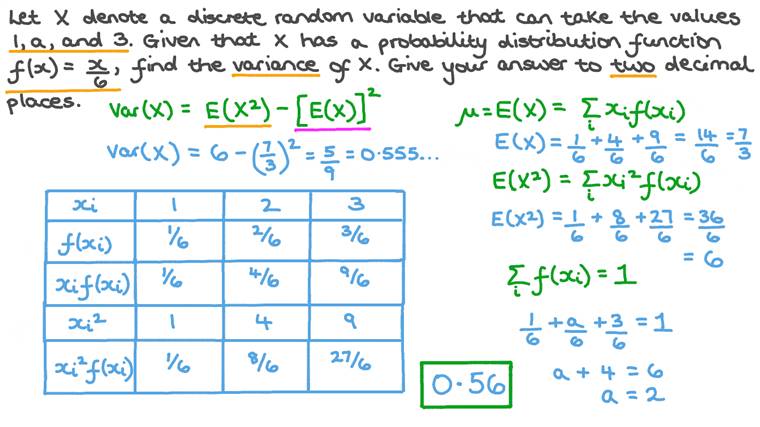 Let X denote a discrete random variable that can take the values
1, a, and 3. Given that X has a probability distribution function
f(x) = x/6, find the variance of X. Give your answer to two decimal
places.
Var(X) = E(X²) - [E(X)]²
Var(X) = 6 - (7/3)² = 5/9 = 0.555...
xi 1 2 3
f(xi) 1/6 2/6 3/6
xif(xi) 1/6 4/6 9/6
xi² 1 4 9
xi²f(xi) 1/6 8/6 27/6
μ = E(X) = Σi xif(xi)
E(X) = 1/6 + 4/6 + 9/6 = 14/6 = 7/3
E(X²) = Σi xi²f(xi)
E(X²) = 1/6 + 8/6 + 27/6 = 36/6
= 6
Σi f(xi) = 1
1/6 + a/6 + 3/6 = 1
a + 4 = 6
a = 2
0.56